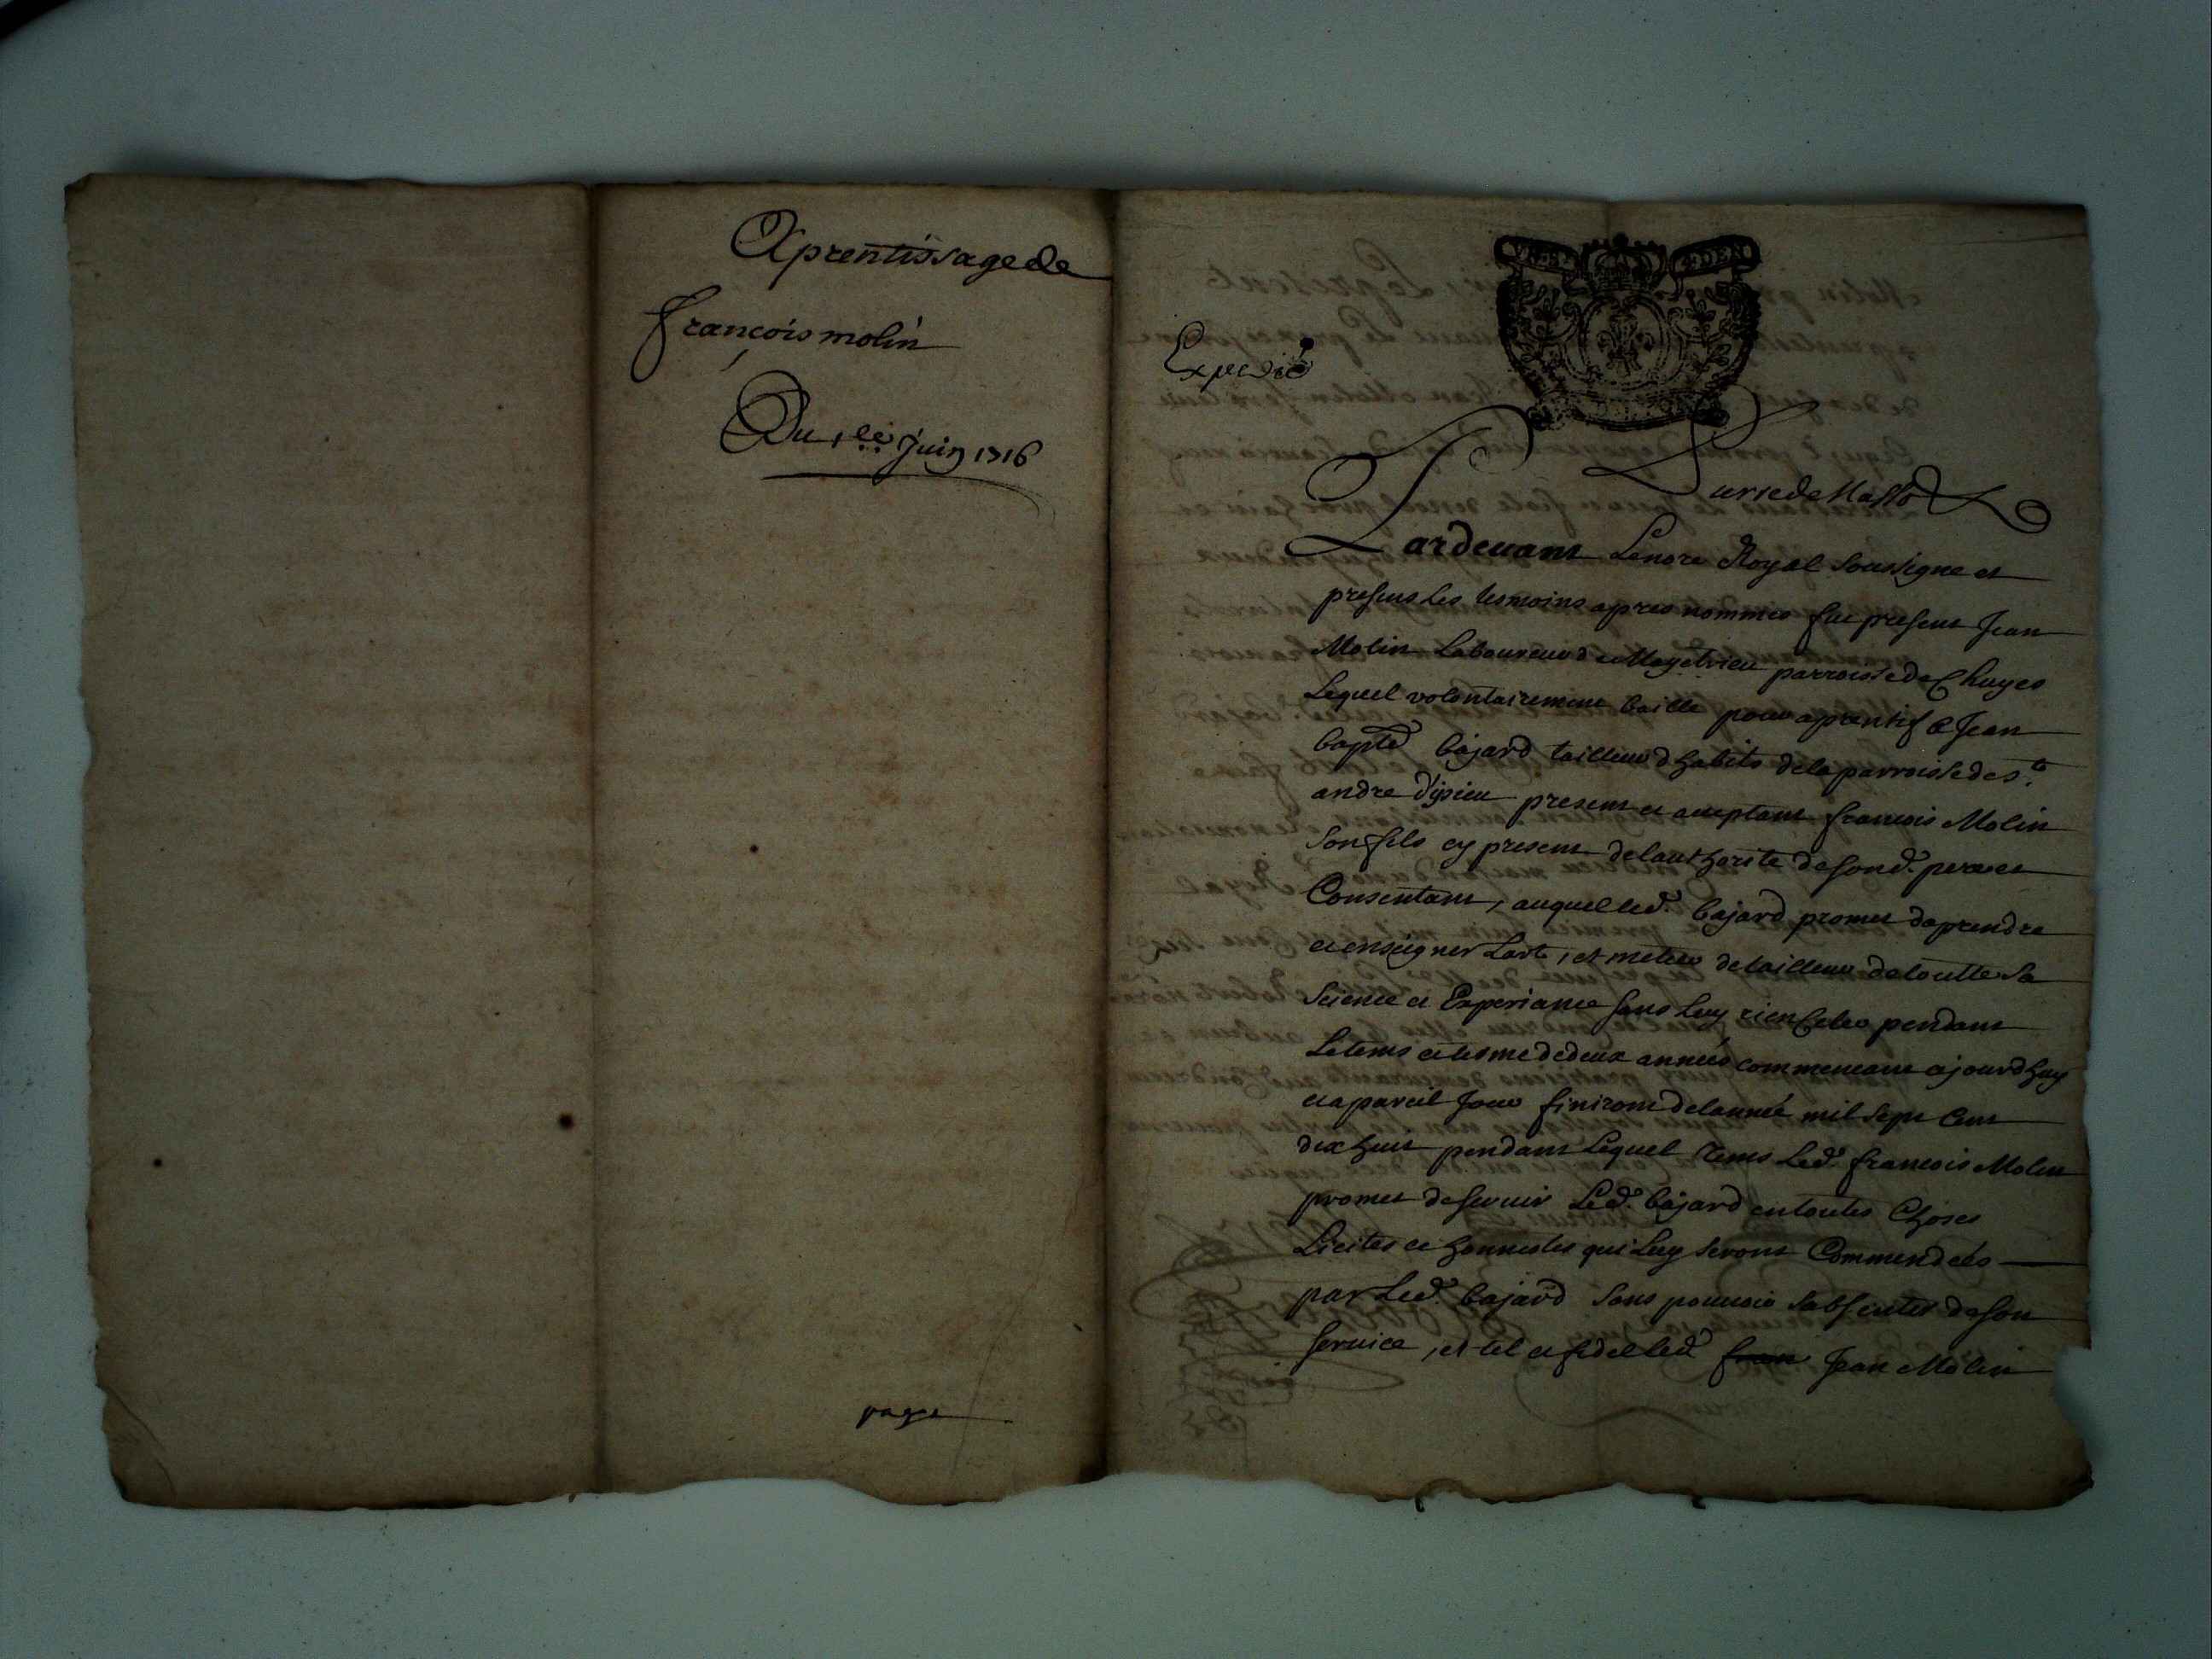 Aprentissage de
francois molin
Du 1er juin 1716
page
Expedié
Pardeuant Le nore Royal soussigne et
presens les tesmoins apres nommes fut present Jean
Molin Laboureur de parroisse de Chuyes
Lequel volontairement baille pour aprentif a Jean
bapte bajard tailleur dhabits de la parroisse de st
andre present et aceptant francois Molin
son fils cy present de lauthorite de sond. pere et
Consentant, auquel led. bajard promet daprendre
et enseigner Lart, et metier de tailleur de toutte sa
science et Experiance sans luy rien Celer pendant
Le tems et terme de deux années commencant ajourdhuy
et a pareil Jour finiront de lannée mil sept Cent
dix huit pendant Lequel tems Led. francois Molin
promet de seruir Led. bajard en toutes Choses
Licites et honnestes qui Luy seront Commendées
par Led. bajard sans pouuoir sabsenter de son
seruice, et tel et fidel led. fran Jean Molin